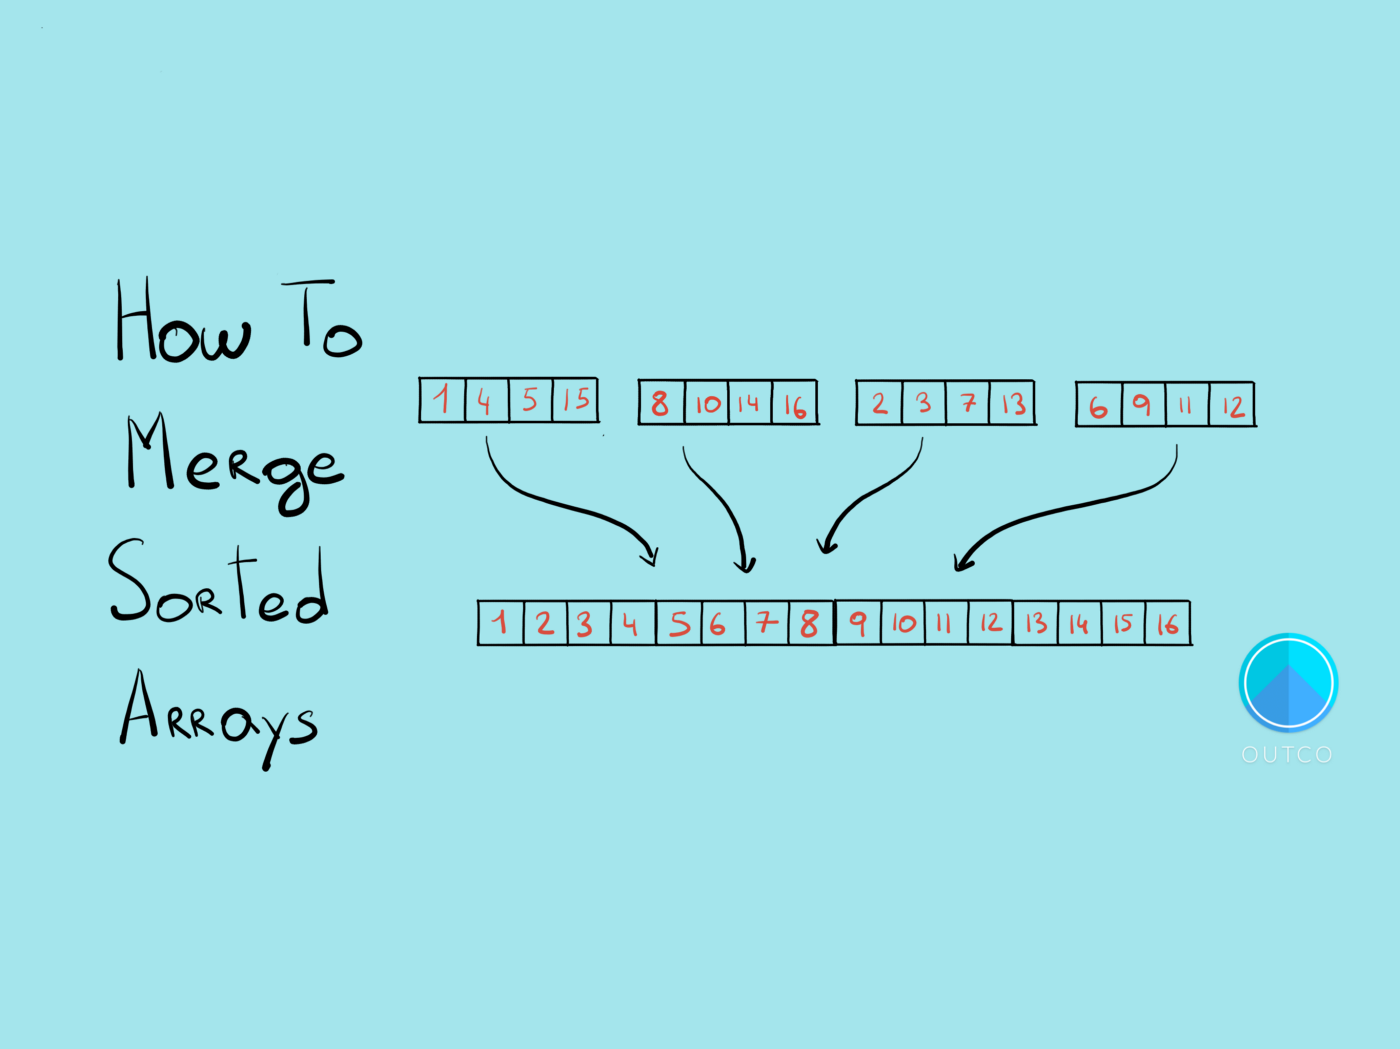 How To
Merge
Sorted
Arrays
1 4 5 15
8 10 14 16
2 3 7 13
6 9 11 12
1 2 3 4 5 6 7 8 9 10 11 12 13 14 15 16
OUTCO